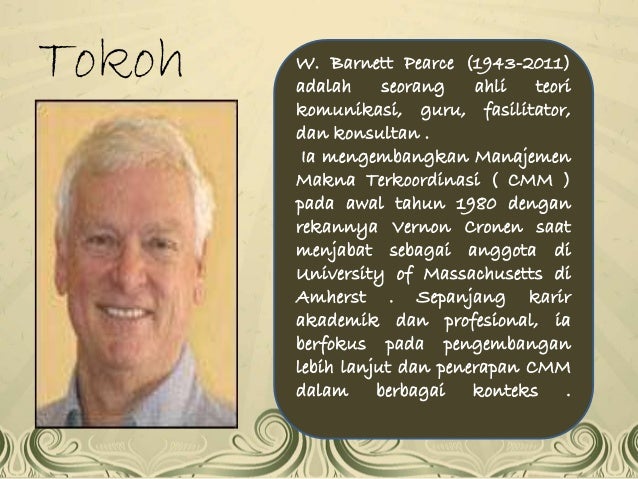 Tokoh
W. Barnett Pearce (1943-2011)
adalah seorang ahli teori
komunikasi, guru, fasilitator,
dan konsultan .
Ia mengembangkan Manajemen
Makna Terkoordinasi ( CMM )
pada awal tahun 1980 dengan
rekannya Vernon Cronen saat
menjabat sebagai anggota di
University of Massachusetts di
Amherst . Sepanjang karir
akademik dan profesional, ia
berfokus pada pengembangan
lebih lanjut dan penerapan CMM
dalam berbagai konteks .